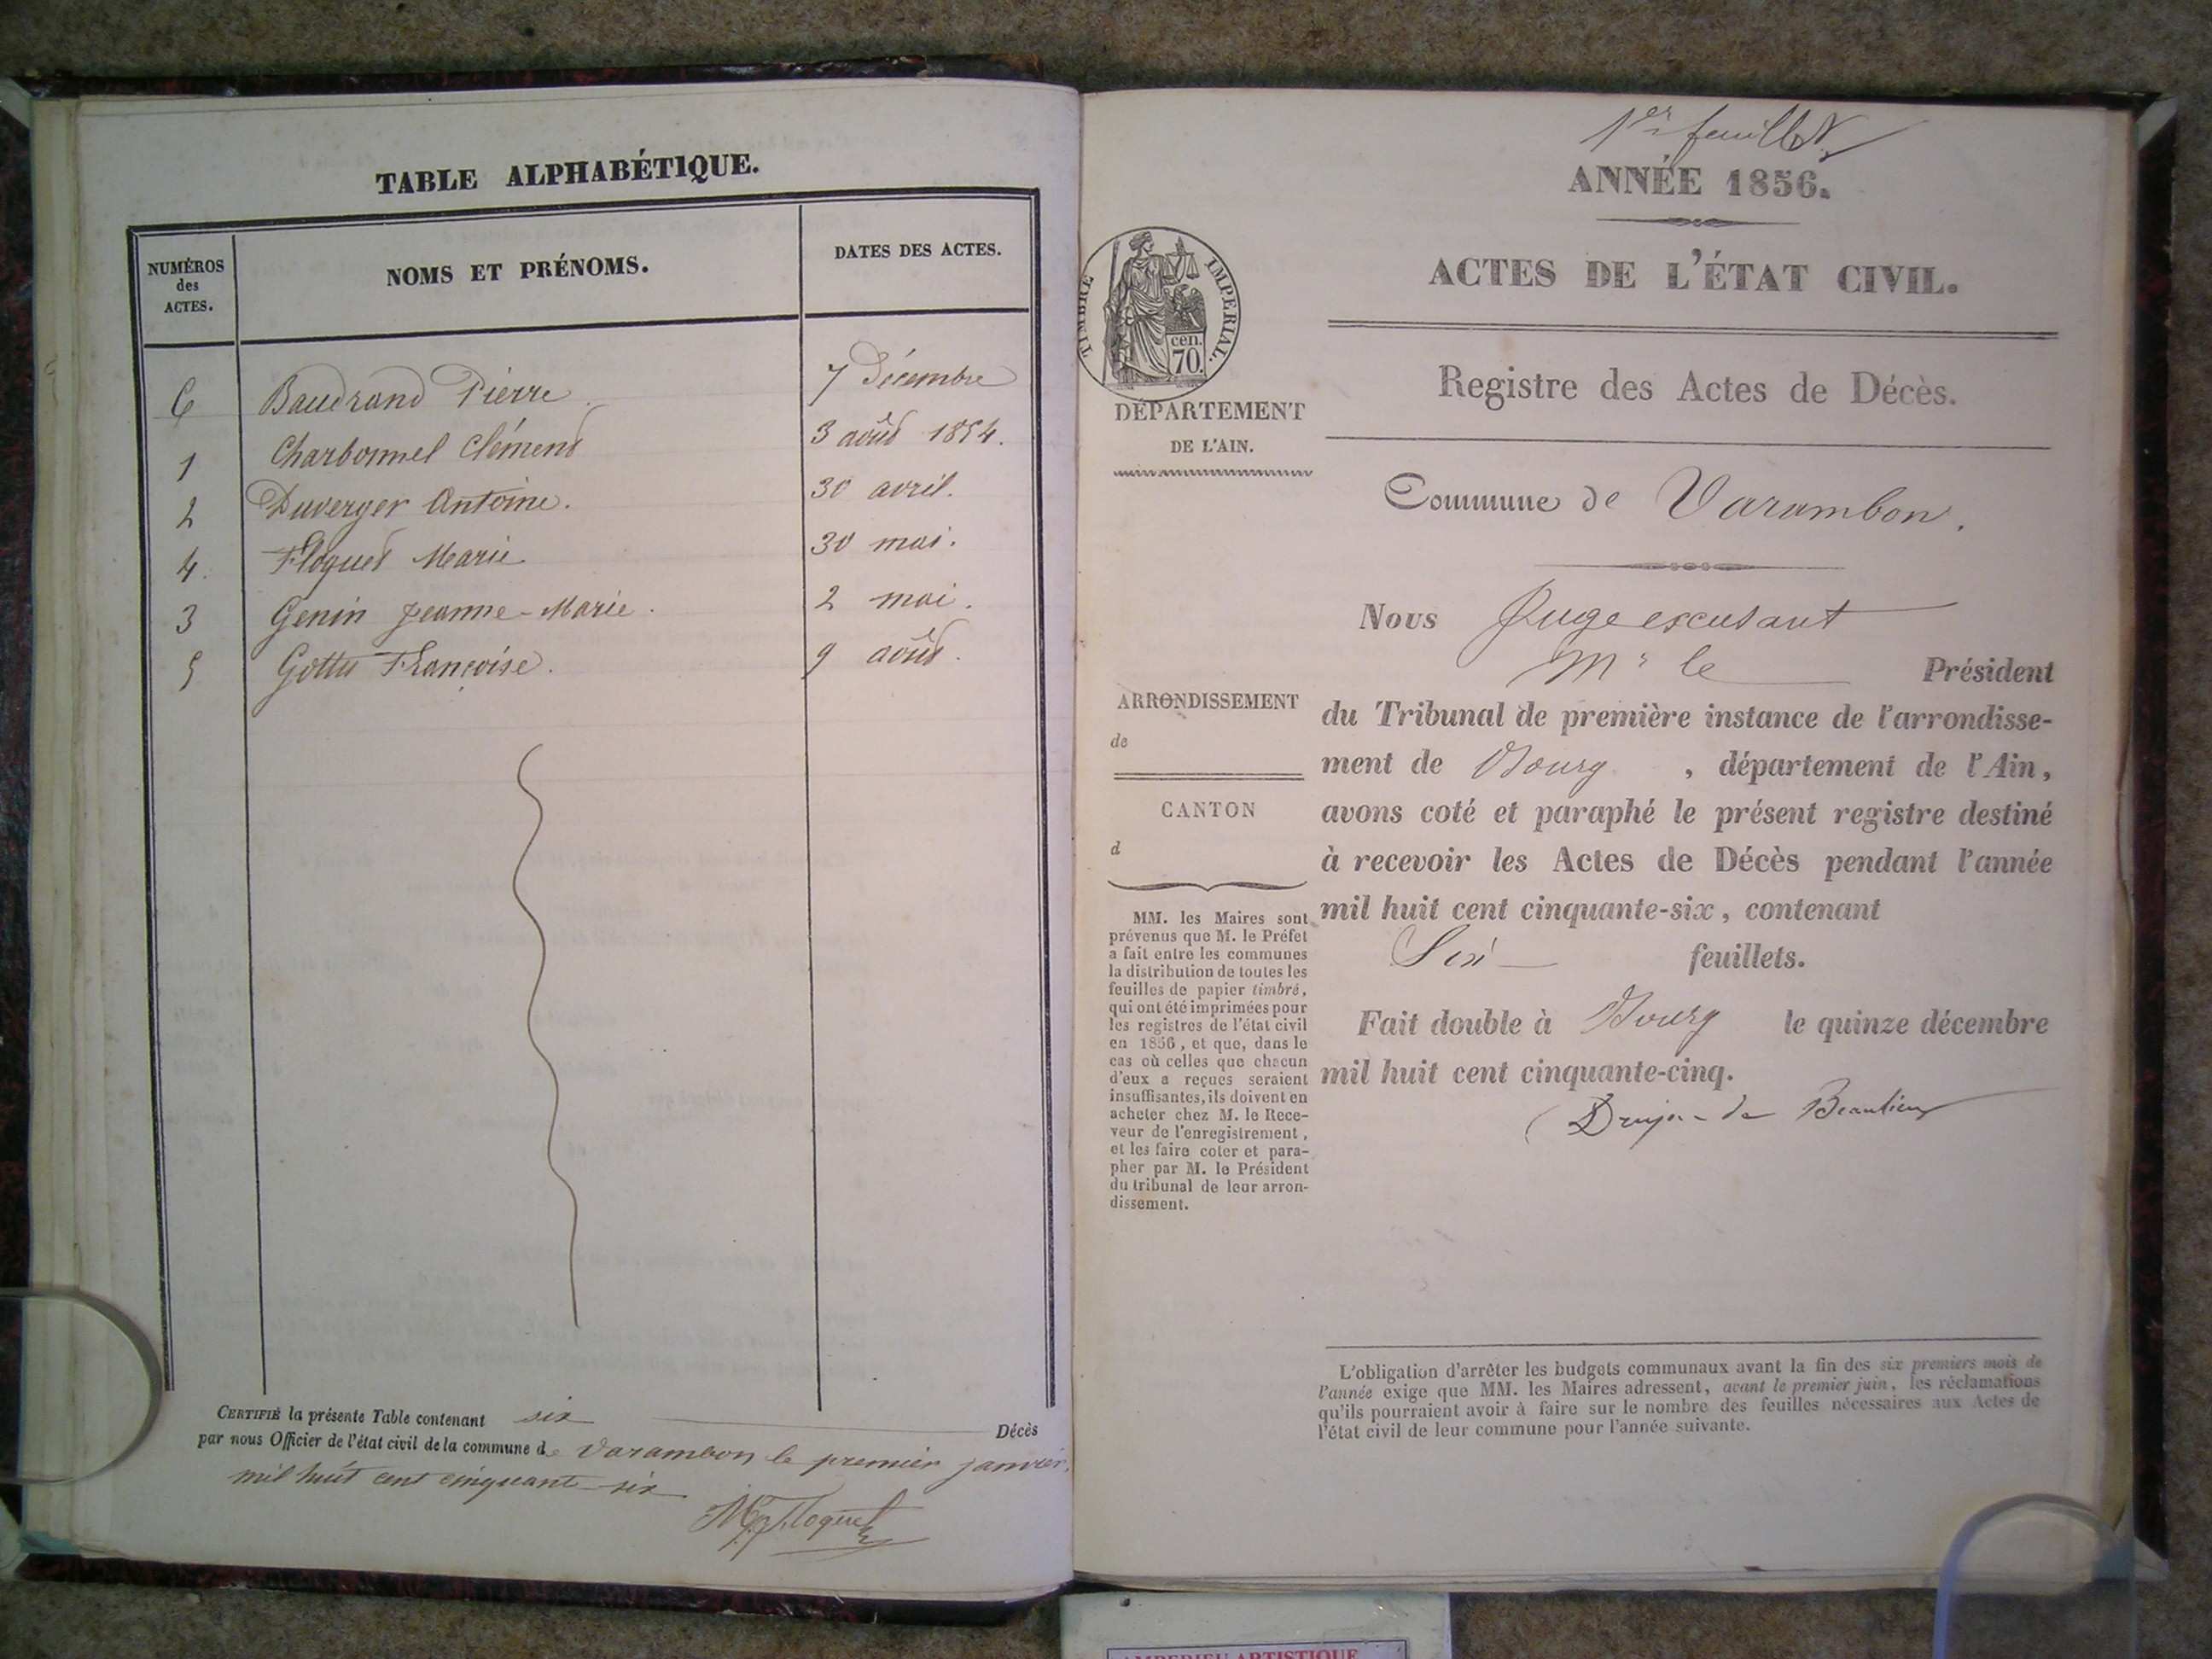 TABLE ALPHABÉTIQUE.
NUMÉROS des ACTES.
NOMS ET PRÉNOMS.
DATES DES ACTES.
6 Baudrand Pierre. 7 Décembre
1 Charbonnel Clément 3 août 1854.
2 Duverger Antoine. 30 avril.
4. Floquet Marie 30 mai.
3 Genin Jeanne-Marie. 2 mai.
5 Gottu Françoise. 9 août.
CERTIFIÉ la présente Table contenant six Décès
par nous Officier de l'état civil de la commune de Varambon le premier janvier,
mil huit cent cinquante-six
Floquet
1er feuillet
ANNÉE 1856.
ACTES DE L'ÉTAT CIVIL.
TIMBRE IMPERIAL.
cen.
70.
DÉPARTEMENT
DE L'AIN.
Registre des Actes de Décès.
Commune de Varambon.
ARRONDISSEMENT
de
CANTON
d
MM. les Maires sont
prévenus que M. le Préfet
a fait entre les communes
la distribution de toutes les
feuilles de papier timbré,
qui ont été imprimées pour
les registres de l'état civil
en 1856, et que, dans le
cas où celles que chacun
d'eux a reçues seraient
insuffisantes, ils doivent en
acheter chez M. le Rece-
veur de l'enregistrement,
et les faire coter et para-
pher par M. le Président
du tribunal de leur arron-
dissement.
Nous Juge excusant
Mr le Président
du Tribunal de première instance de l'arrondisse-
ment de Bourg, département de l'Ain,
avons coté et paraphé le présent registre destiné
à recevoir les Actes de Décès pendant l'année
mil huit cent cinquante-six, contenant
Six feuillets.
Fait double à Bourg le quinze décembre
mil huit cent cinquante-cinq.
de Beaulieu
L'obligation d'arrêter les budgets communaux avant la fin des six premiers mois de
l'année exige que MM. les Maires adressent, avant le premier juin, les réclamations
qu'ils pourraient avoir à faire sur le nombre des feuilles nécessaires aux Actes de
l'état civil de leur commune pour l'année suivante.
AMBERIEU ARTISTIQUE